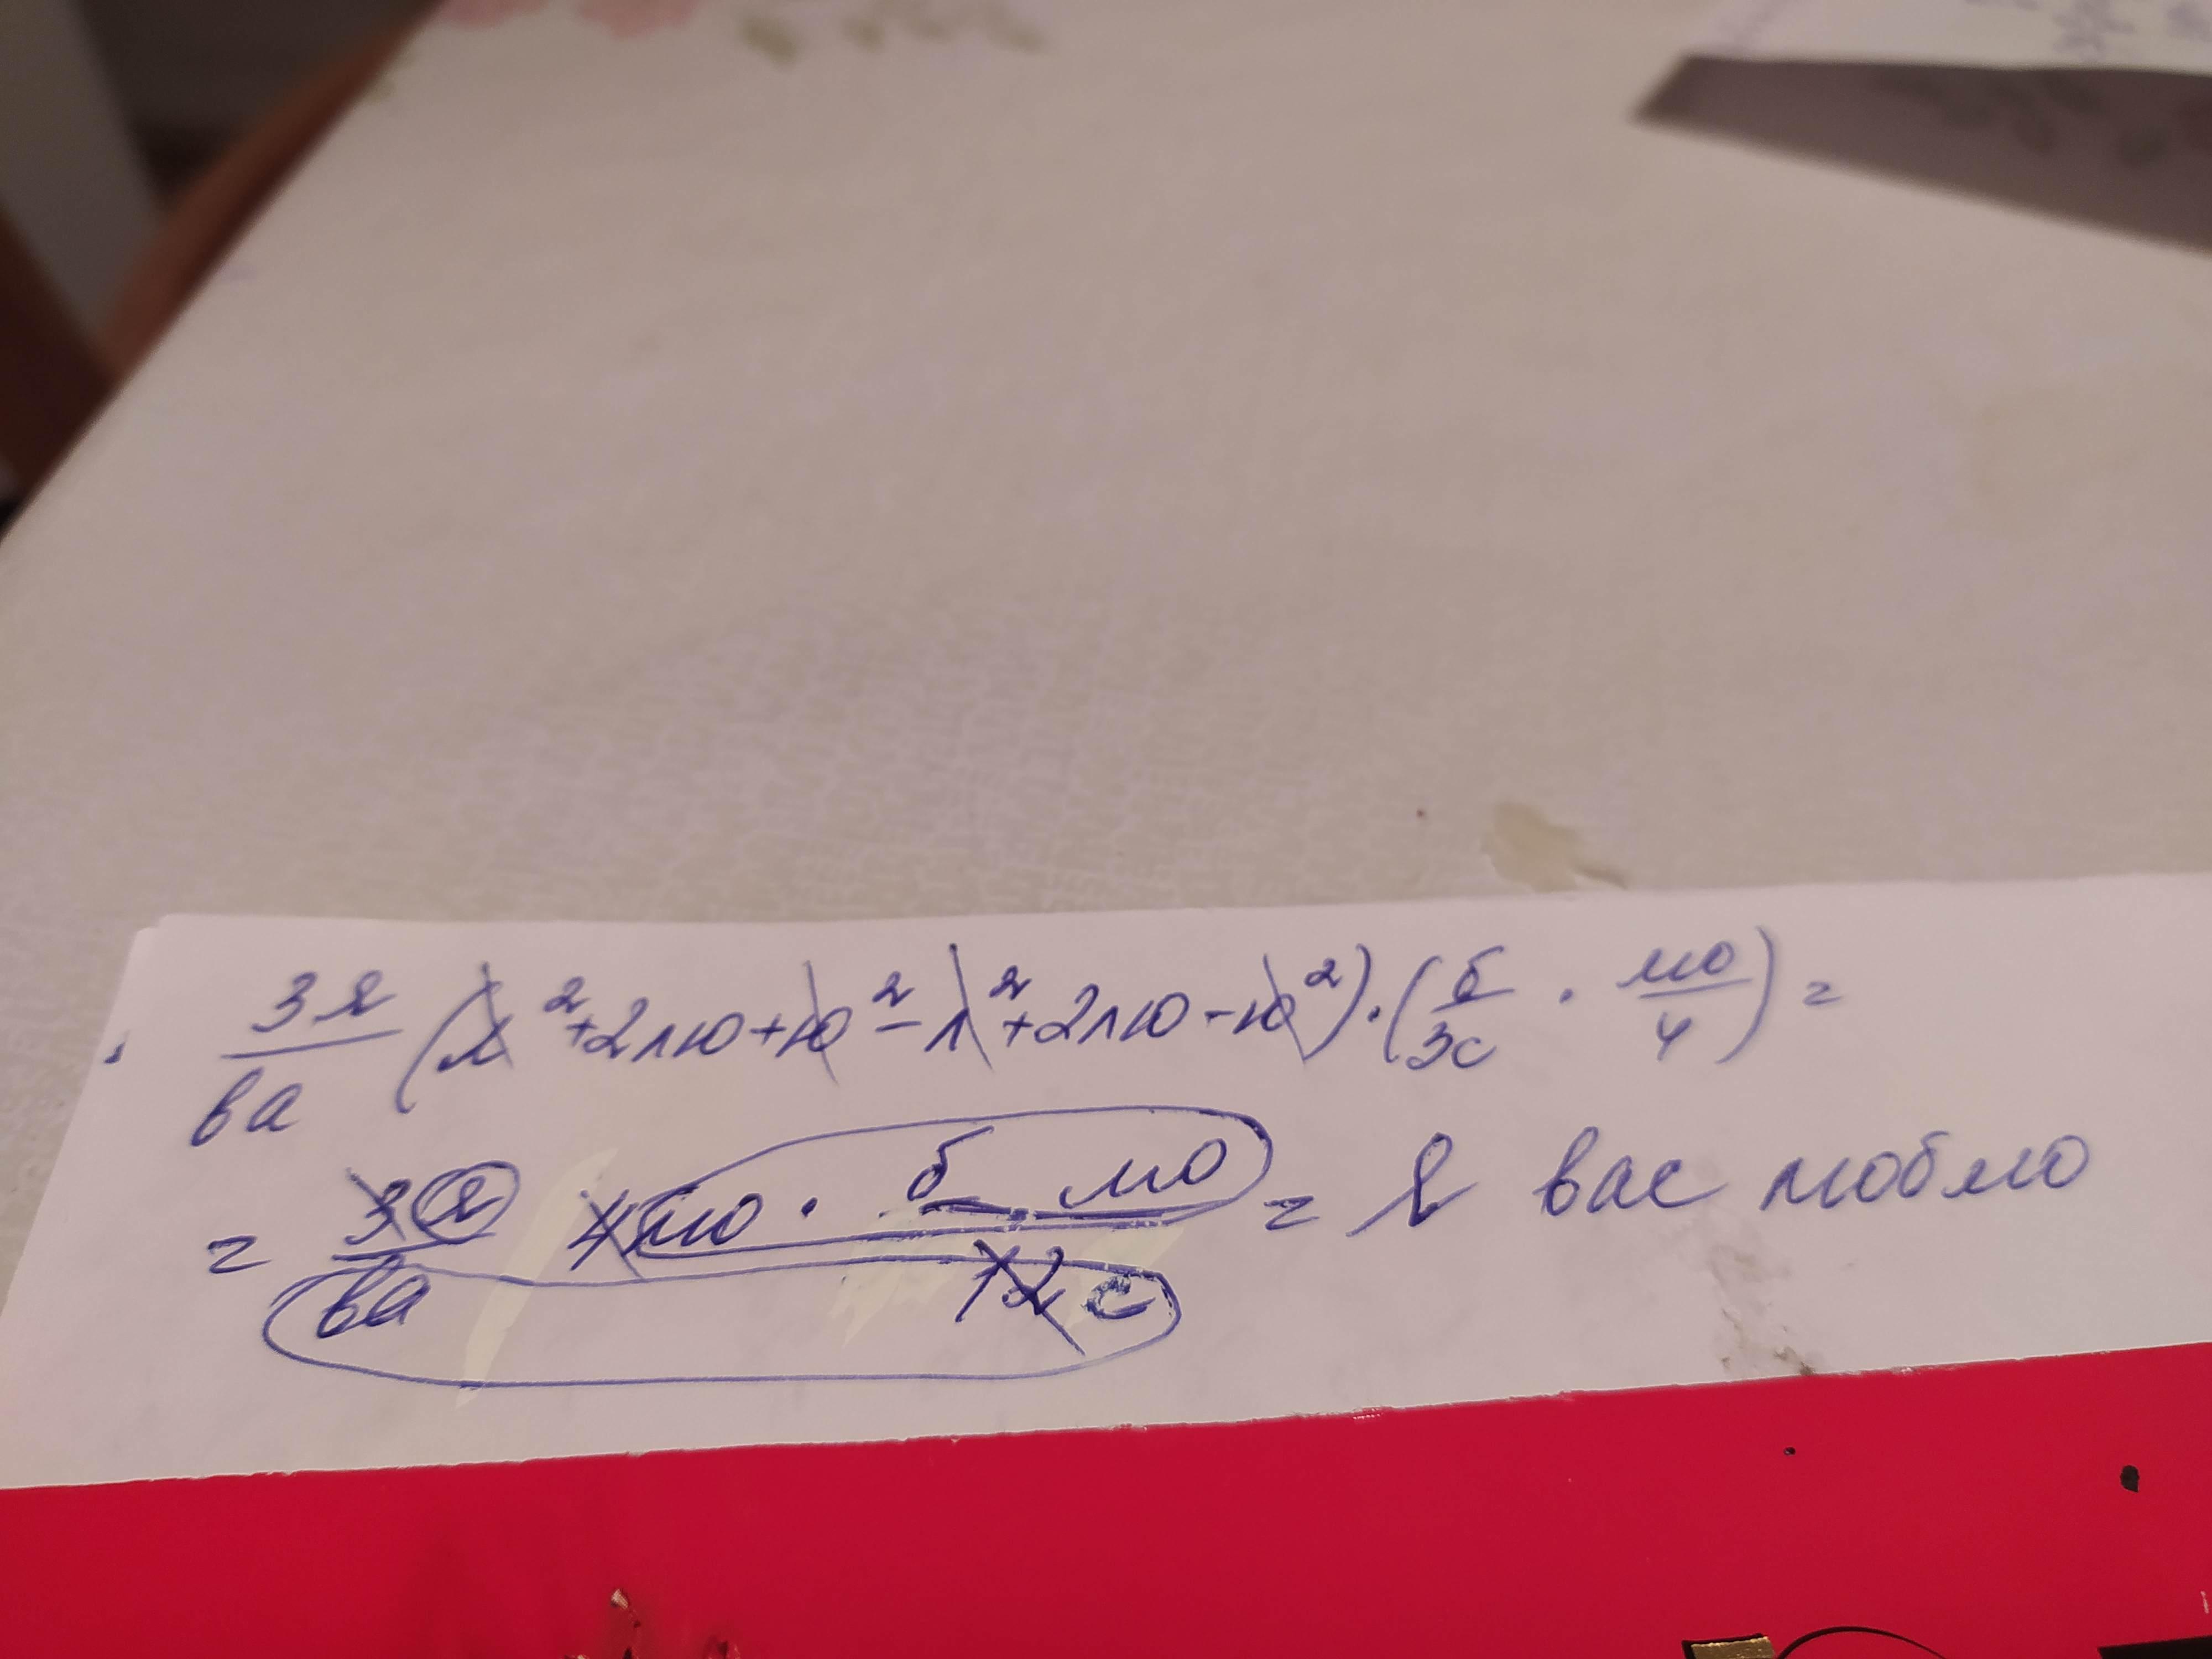 3я/ва (л² + 2лю + ю² - л² + 2лю - ю²) · (б/3с · лю/4) =
= 3я/ва 4лю · б · лю/12с = я вас люблю